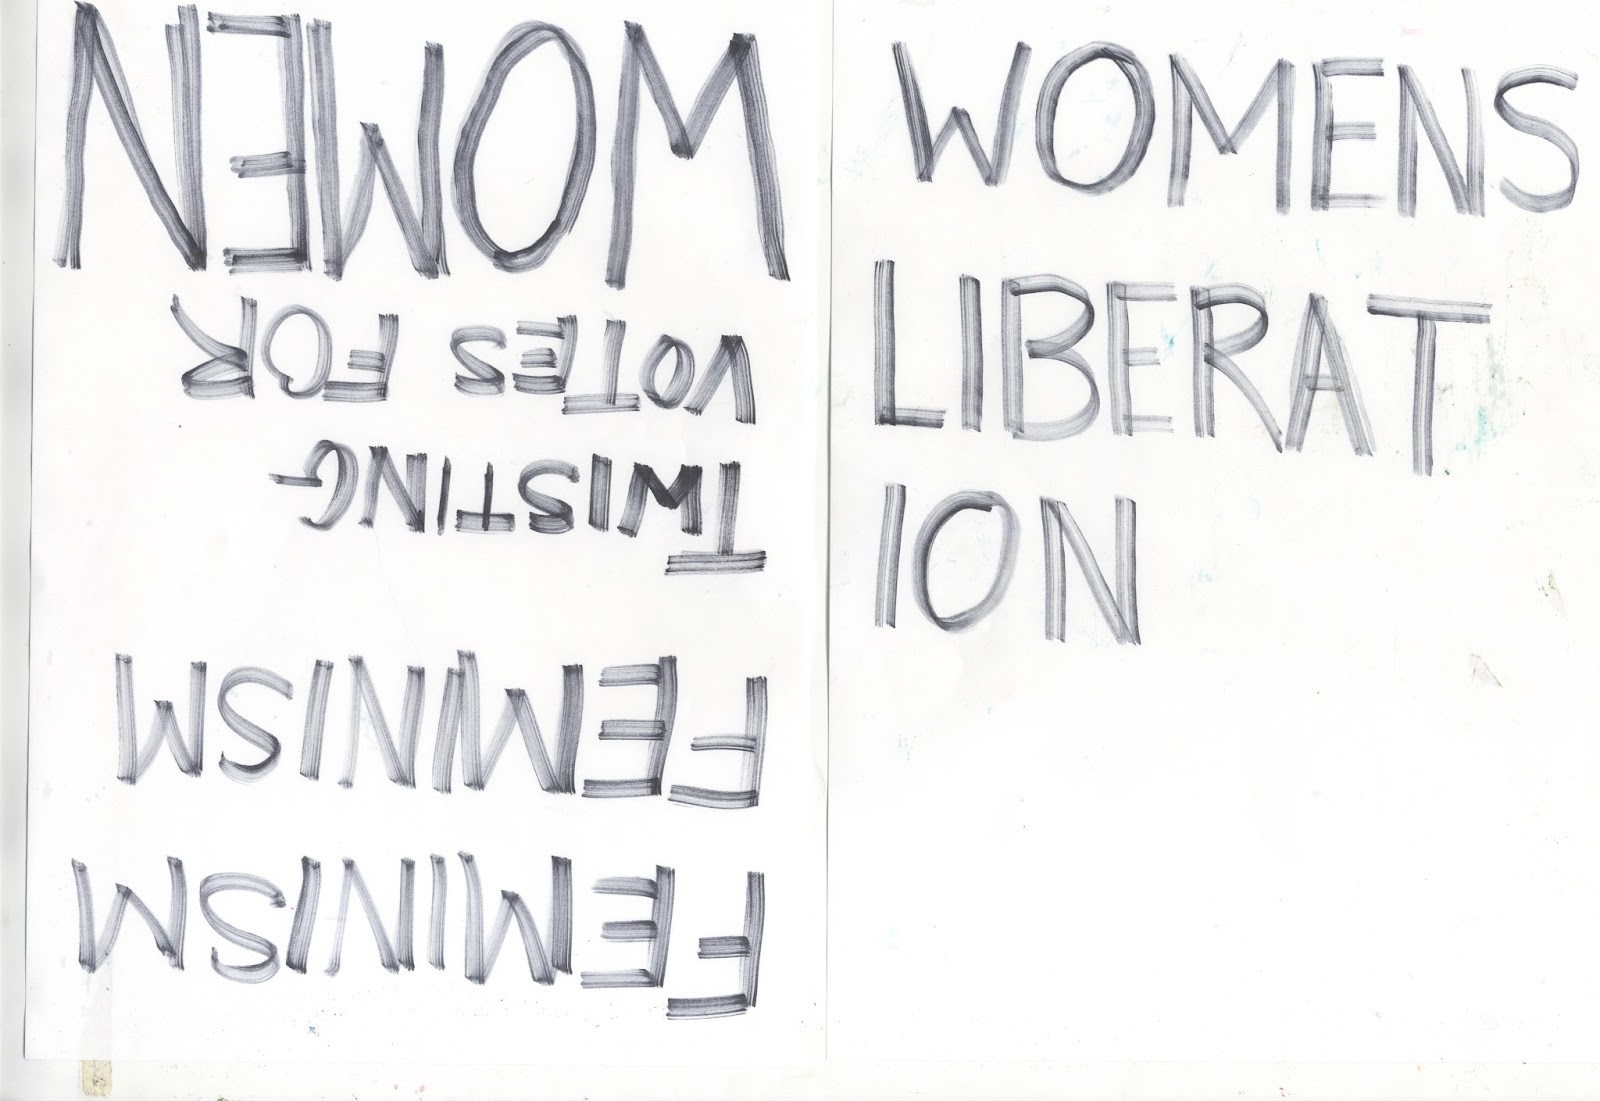 FEMINISM
FEMINISM
TWISTING
VOTES FOR
WOMEN
WOMENS
LIBERAT
ION